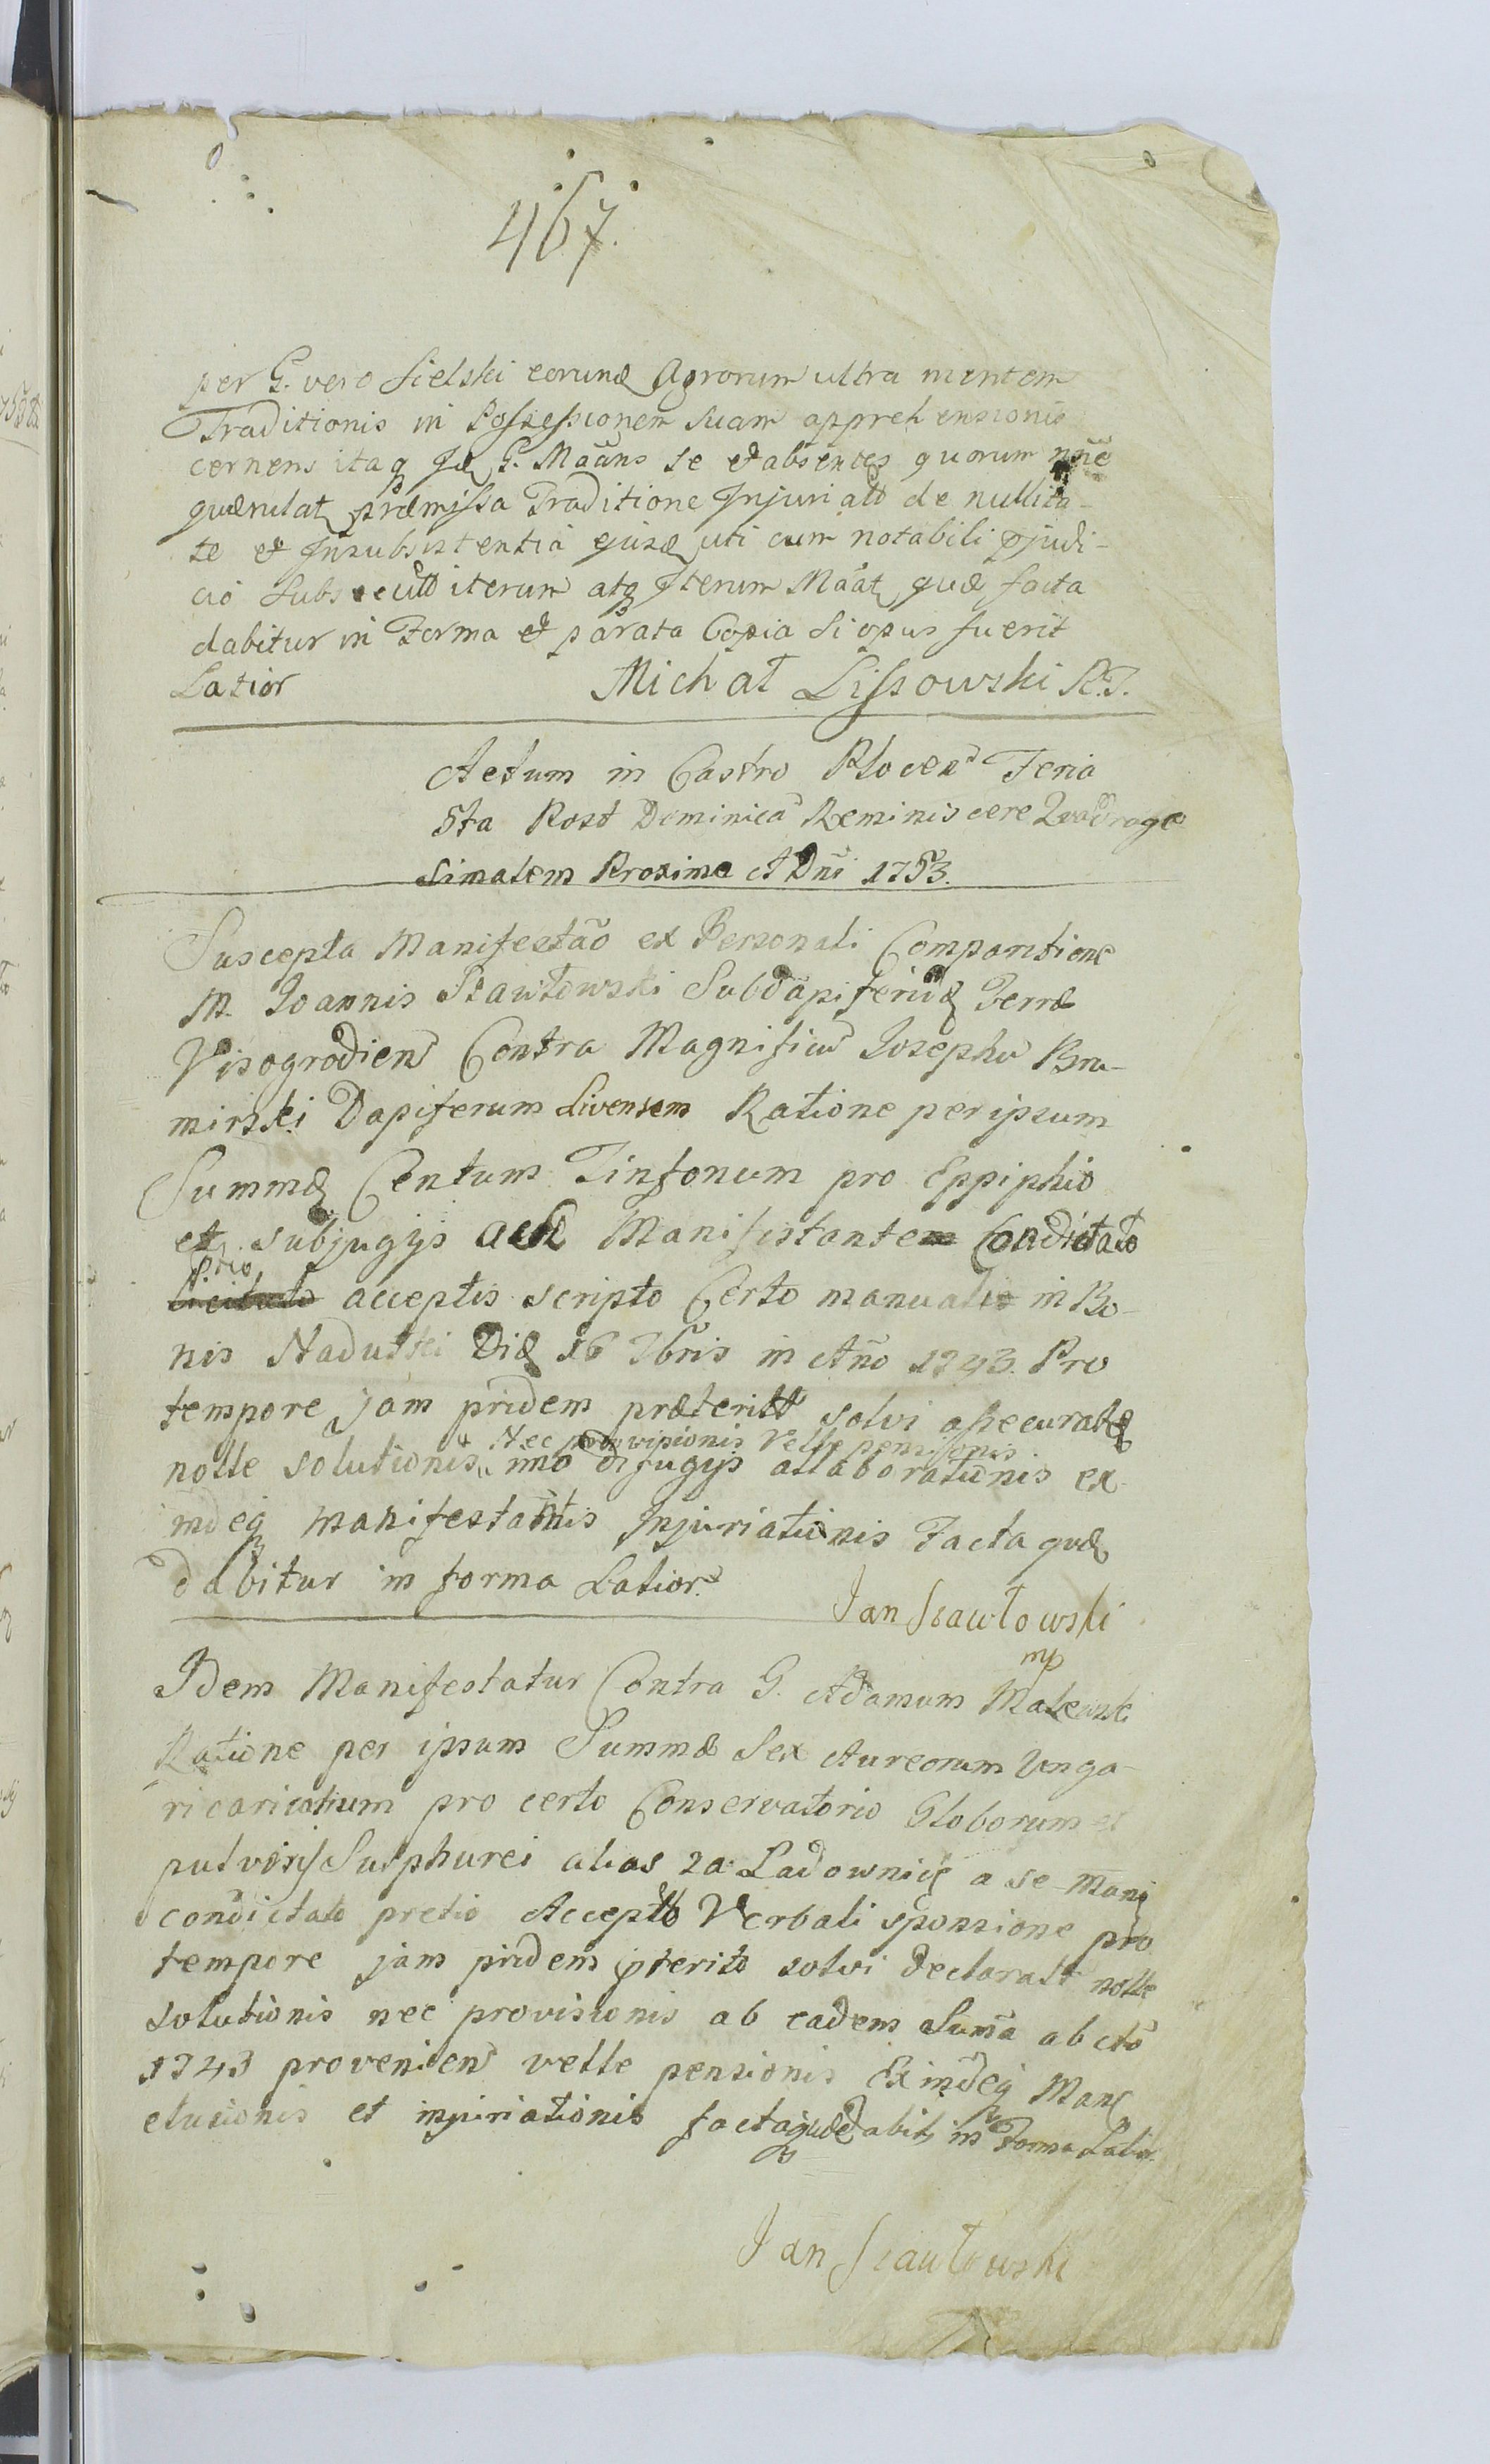 467.
per G. vero Sielski eorund Agrorum ultra mentem
Traditionis in Possessionem suam apprehensionis
cernens itaq G. Mãans se et absentes quorum nñe
quærulat præmissa Traditione Injuriatt de nullita-
te et Insubsistentia ejusd uti cum notabili pjudi-
cio subsecutt iterum atq Iterum Mãat quæ facta
dabitur in Forma et parata Copia si opus fuerit
Latior Michał Lissowski R.T.
Actum in Castro Plocen Feria
5ta Post Dominicã Reminiscere Quadrage
simalem Proxima A Dñi 1753.
Suscepta Manifestão ex Personali Comparitione
M. Joannis Sławłowski Subdapiferid Terræ
Visogrodien Contra Magnificũ Josephũ Bru-
mirski Dapiferum Livensem Ratione per ipsum
Summæ Centum Tinfonum pro Eppiphio
et subjugijs a Manifestante Condictato
ptio
acceptis scripto Certo manuali in Bo-
nis Nadułki Die 16 7bris in Año 1743. Pro
tempore jam pridem præteritt solvi assecuratæ
Nec provisionis Velle pensionis
nolle solutionis, imo difugijs allaborationis ex
indeq manifestantis Injuriationis Facta quæ
dabitur in forma Latiori
Jan Sławłowski
mp
Idem Manifestatur Contra G. Adamum Malewski
Ratione per ipsum Summæ Sex Aureorum Unga-
ricaricalium pro certo Conservatorio Globorum et
pulveris Sulphurei alias za Ładownicę a se Mani
condictato pretio Acceptt Verbali sponsione pro
tempore jam pridem pterito solvi declaratt nolle
solutionis nec provisionis ab eadem Sumã ab Aõ
1743 provenien velle pensionis Ex indeq Man
elusionis et injuriationis facta quæ dabit in Forma Latio
Jan Sławłowski